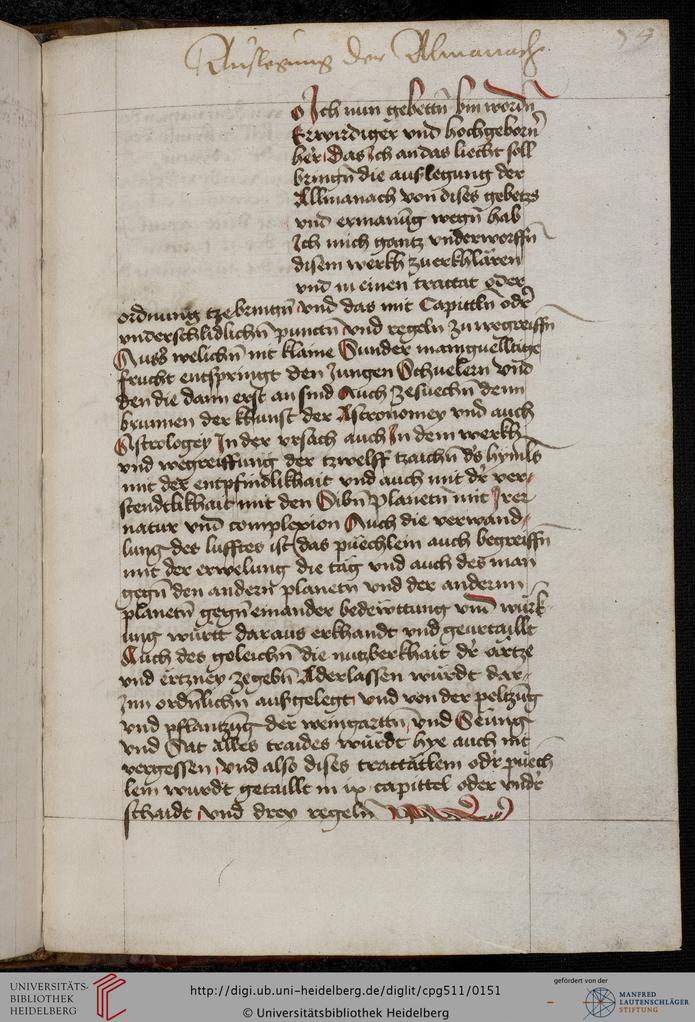 Auslegung der Almanach
79
o Ich nun gebettn̄ bin wordn̄
Erwirdiger vnd hochgeborn̄
her Das Ich an das liecht soll
bringn̄ die auslegung der
Allmanach von dises gebetzs
vnd ermanūg wegn̄ hab
Ich mich gantz vnderworffn̄
disem werkh zuerkhlären
vnd in einen tractat oder
ordnung tze bringn̄ vnd das mit Capittln̄ odr̄
vnderschidlichn̄ punctn̄ vnd regeln zu wegreiffn̄
Auss welichn̄ nit klaine Sunder manigueltige
frucht entspringt den Jungen Schuelern vnd
den die dann erst an sind Auch zesuechn̄ denn
brunnen der khunst der Astronomey vnd auch
Astrologey In der vrsach auch In dem werkh
vnd wegreiffung der tzwelff tzaichn̄ ds̄ hymls
mit der entpfindlikhait vnd auch mit dr̄ ver-
stendtlikhait mit den Sibn̄ planetn̄ mit Irer
natur vnd complexion Auch die verwand-
lung des lufftes ist das püechlein auch begreiffn̄
mit der erwelung die täg vnd auch des man
gegn̄ den andern planetn̄ vnd der andernn
planetn̄ gegn̄ einander bedewttung vnd würk-
ung württ daraus erkhandt vnd geurtaillt
Auch des geleichn̄ die nutzberkhait dr̄ ärtze
vnd ertzney zegebn̄ Aderlassen würdt dar-
Inn ordn̄lichn̄ aufgelegt vnd von der peltzūg
vnd pflantzūg der weingarttn̄ vnd Seūng
vnd Sat alles traides würdt hye auch nit
vergessen vnd also dises tractätlein odr̄ püech
lein wurdt getaillt in ix capittel oder vndr̄
schaidt vnd drey regeln̄
UNIVERSITÄTS-
BIBLIOTHEK
HEIDELBERG
http://digi.ub.uni-heidelberg.de/diglit/cpg511/0151
© Universitätsbibliothek Heidelberg
gefördert von der
MANFRED
LAUTENSCHLÄGER
STIFTUNG